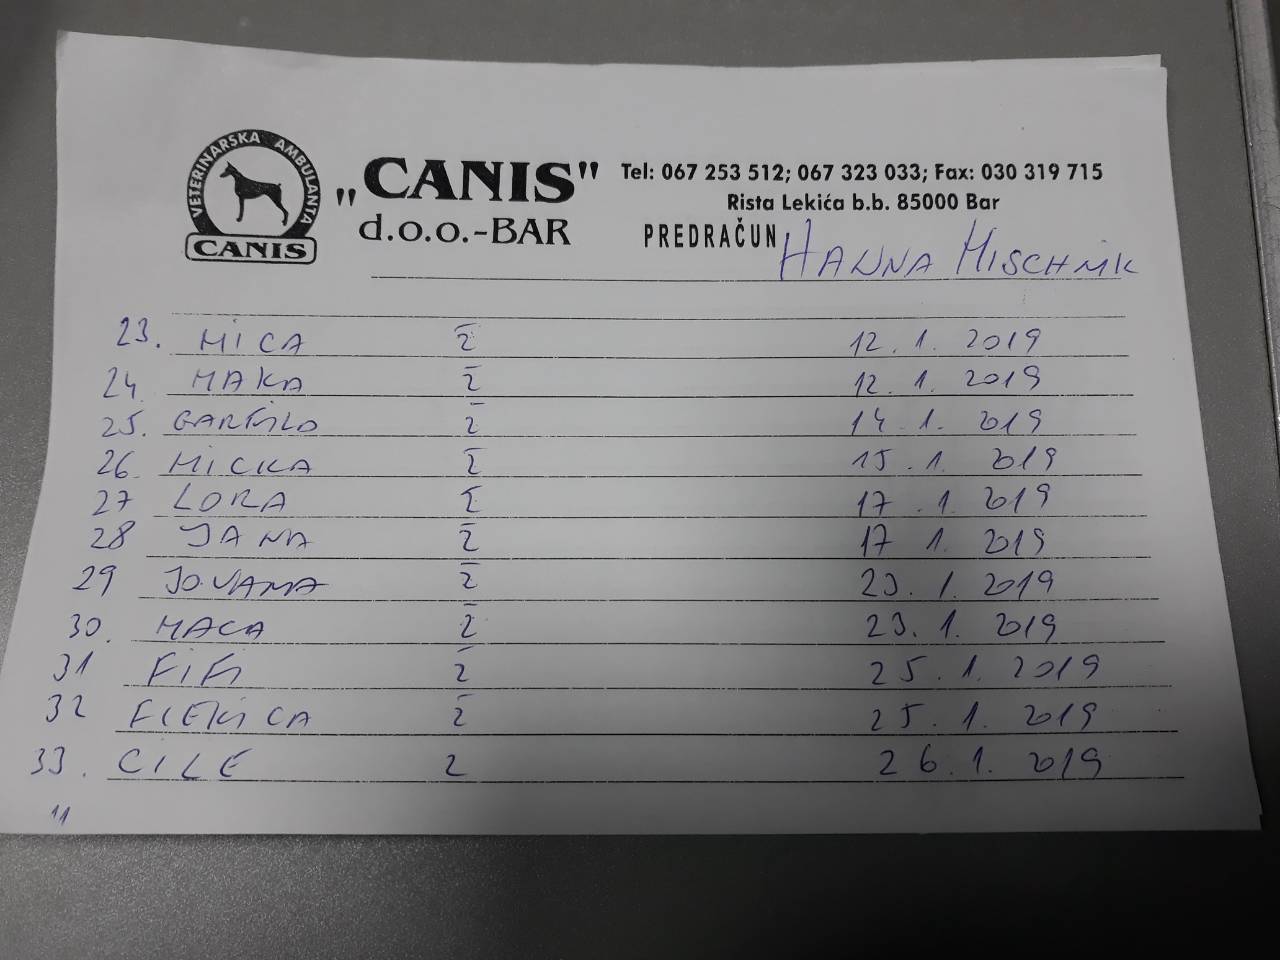 VETERINARSKA AMBULANTA
CANIS
„CANIS"
d.o.o.-BAR
Tel: 067 253 512; 067 323 033; Fax: 030 319 715
Rista Lekića b.b. 85000 Bar
PREDRAČUN HANNA MISCHNIK
23. MICA Ž 12. 1. 2019
24. MAKA Ž 12. 1. 2019
25. GARFILD Ž 14. 1. 2019
26. MICKA Ž 15. 1. 2019
27 LORA Ž 17. 1 2019
28 JANA Ž 17 1. 2019
29 JOVANA Ž 23. 1. 2019
30. MACA Ž 23. 1. 2019
31 FIFI Ž 25. 1. 2019
32 Ž 25. 1. 2019
33. CILE Ž 26. 1. 2019
11